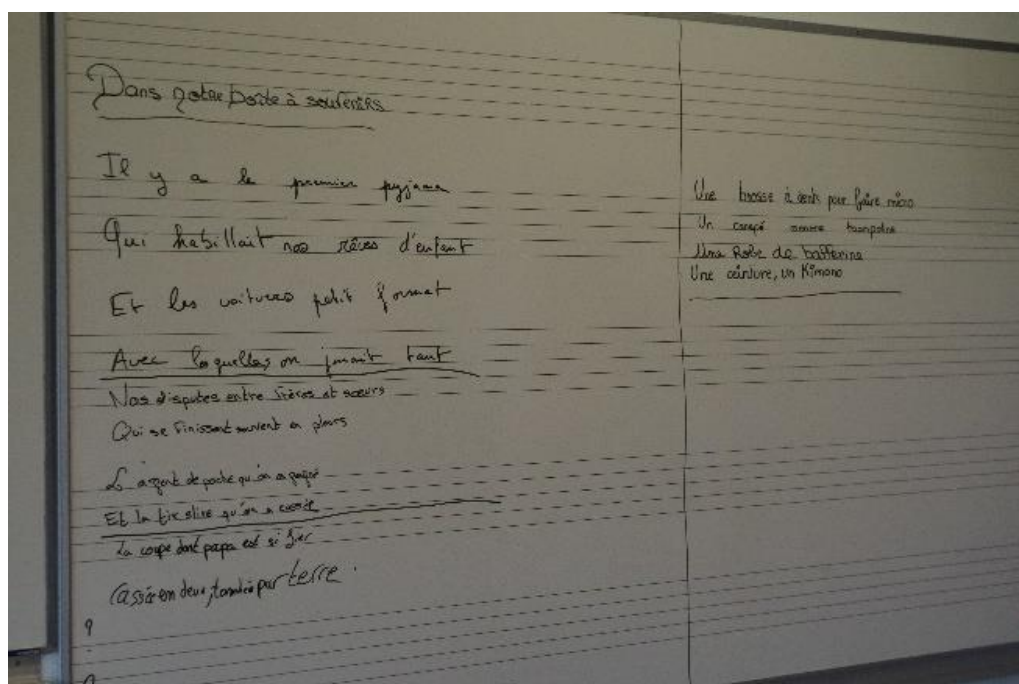 Dans notre boîte à souvenirs
Il y a le premier pyjama
Qui habillait nos rêves d'enfant
Et les voitures petit format
Avec lesquelles on jouait tant
Nos disputes entre frères et sœurs
Qui se finissent souvent en pleurs
L'argent de poche qu'on a
Et la tirelire qu'on a
La coupe dont papa est si fier
Cassée en deux, tombée par terre.
?
Une brosse à dents pour faire micro
Un canapé comme trampoline
Une Robe de ballerine
Une ceinture, un Kimono